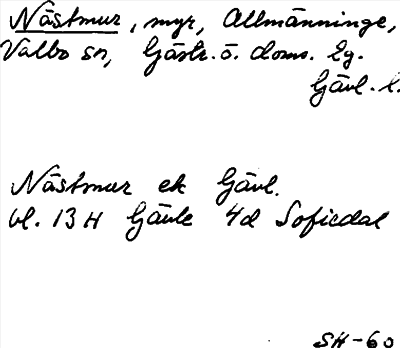 Nästmur, myr, Allmänninge,
Valbo sn, Gästr. ö. doms. lg.
Gävl. l.
Nästmur ek Gävl.
bl. 13 H Gävle 4d Sofiedal
SH-60